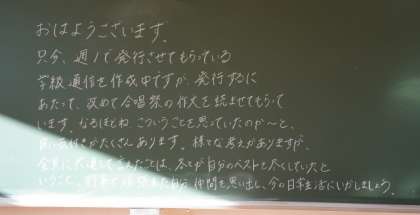 おはようございます。
只今、週1で発行させてもらっている
学級通信を作成中ですが、発行するに
あたって、改めて合唱祭の作文を読ませてもらって
います。なるほどね、こういうことを思っていたのか〜と、
良い気付きがたくさんあります。様々な考えがありますが、
全員に共通して言えたことは、各々が自分のベストを尽くしていたと
いうこと。仲間を思い出し、今の日常生活にいかしましょう。